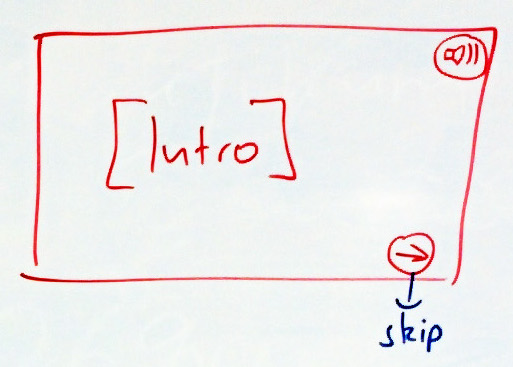 [Intro]
skip